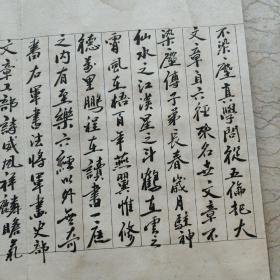 不染塵真學問從五倫起大
文章自六經來名世文章不
染塵傳子弟長春歲月駐神
仙水之江漢星之斗鶴在雲之
霄風在梧百年燕翼惟修
德萬里鵬程在讀書一庭
之內有至樂六經以外無奇
書右軍書法將軍畫史部
文章工部詩威鳳祥麟瞻氣